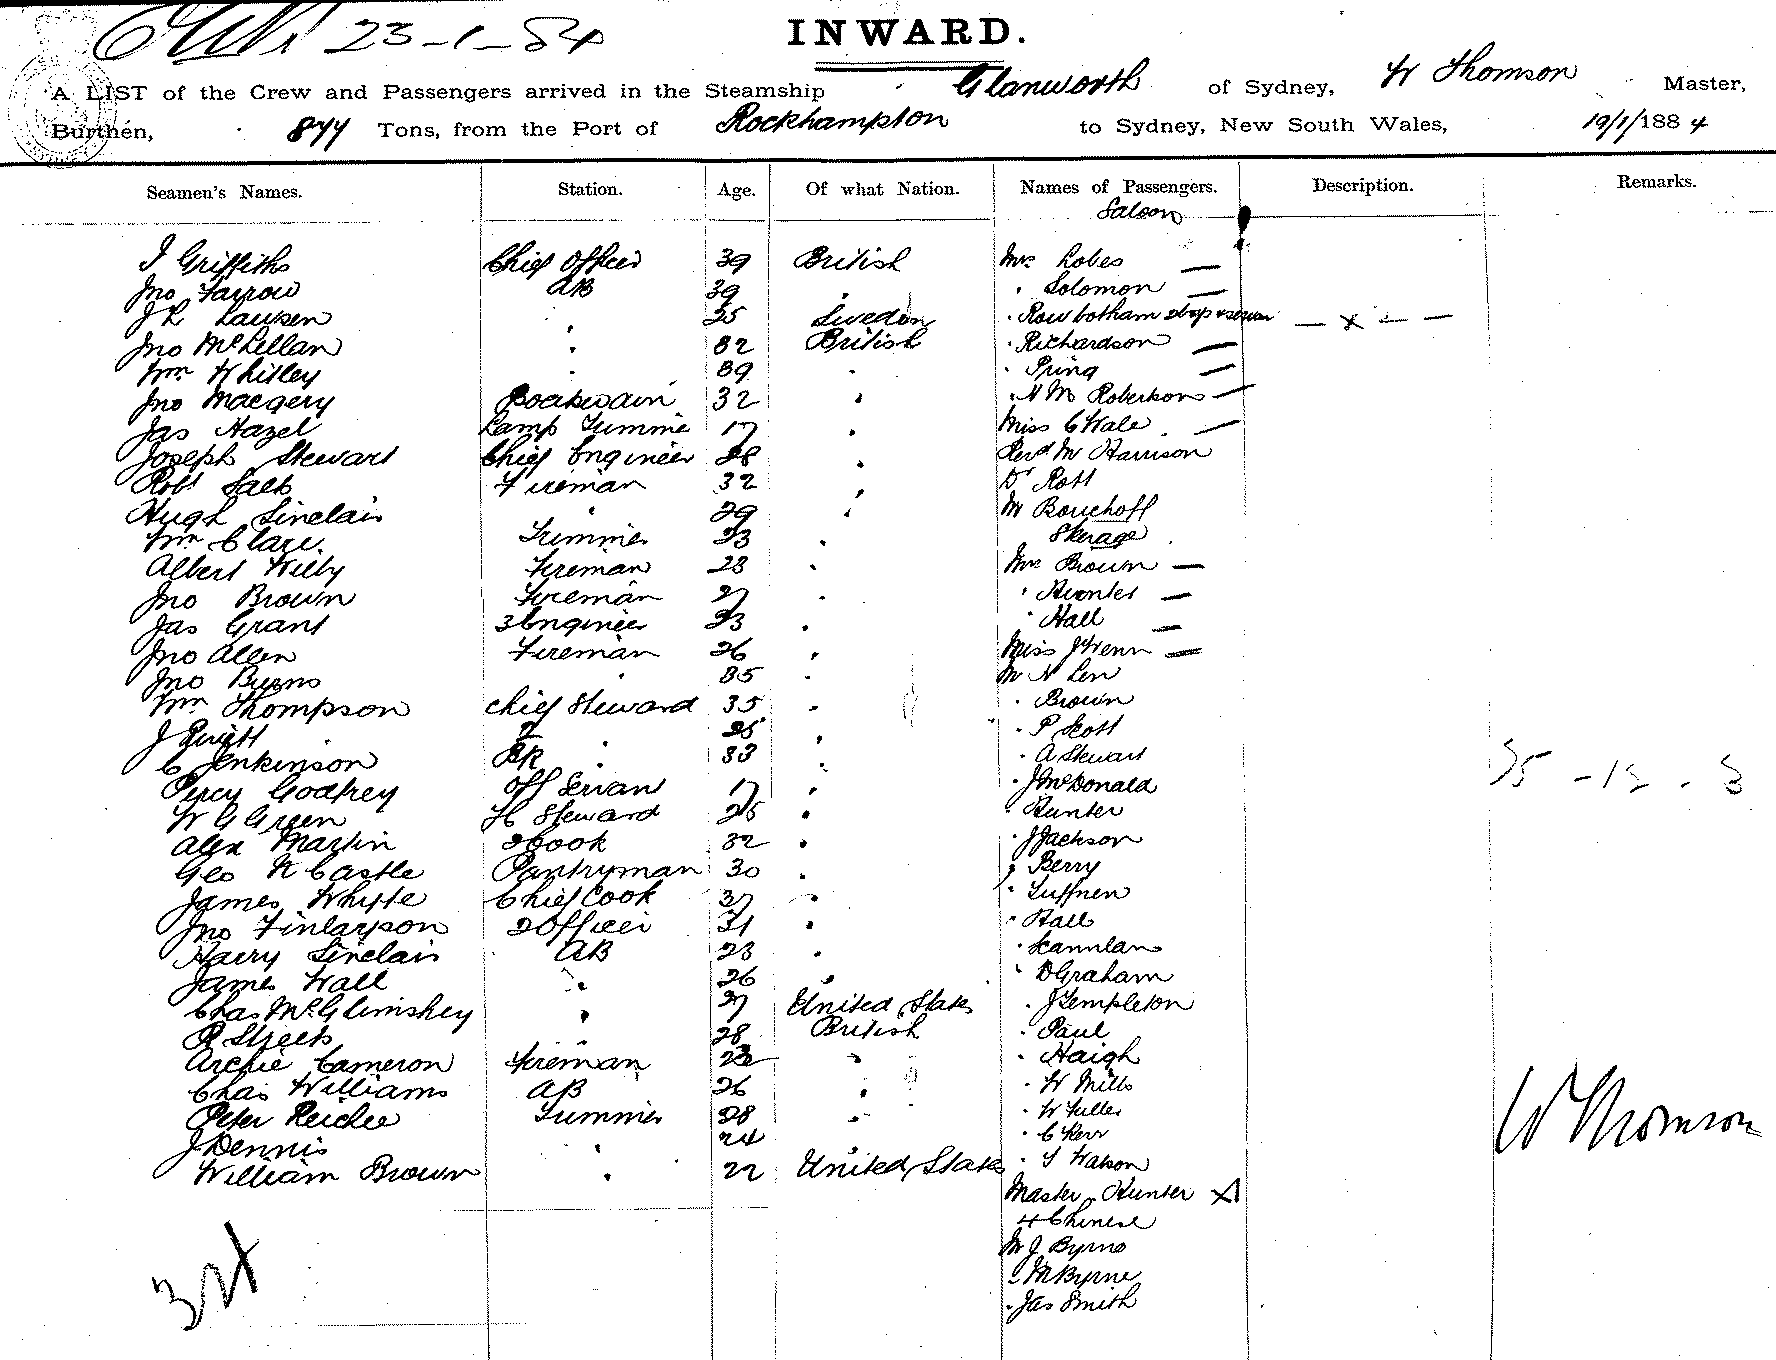 23-1-84
INWARD.
A LIST of the Crew and Passengers arrived in the Steamship Glanworth of Sydney, W Thomson Master,
Burthen, 877 Tons, from the Port of Rockhampton to Sydney, New South Wales, 19/1/1884
Seamen's Names. Station. Age. Of what Nation. Names of Passengers. Description. Remarks.
Saloon
J Griffiths Chief Officer 39 British Mrs Lobes —
Jno Farrow AB 39 " " Solomon —
J L Laursen " 25 Sweden " Rowbotham — x — —
Jno McLellan " 32 British " Richardson —
Wm Whitley " 39 " " Pring —
Jno Macgery Boatswain 32 " " N M Robertson —
Jas Hazel Lamp Trimmer 17 " Miss C Wale —
Joseph Stewart Chief Engineer 28 " Revd M Harrison
Robt Salt Fireman 32 " Dr Rott
Hugh Sinclair " 29 " Mr Bouchoff
Wm Clare. Trimmer 23 " Sterage
Albert Willby Fireman 23 " Mrs Brown —
Jno Brown Fireman 27 " " Hunter —
Jas Grant 3 Engineer 23 " " Hall —
Jno Allen Fireman 26 " Miss J Wenn —
Jno Byrns " 35 " Mr N Len
Wm Thompson Chief Steward 35 " " Brown
J 2 " 25 " " P Scott
C Jenkinson BK 33 " " A Stewart
Percy Godfrey Off Servan 17 " " J McDonald
W G Green Steward 25 " " Hunter
Alex Martin 2 Cook 32 " " J Jackson
Geo K Castle Pantryman 30 " Berry
James Whyte Chief Cook 37 " " Tuffnen
Jno Finlayson 2 Officer 31 " " Hall
Harry Sinclair AB 23 " " Scannlan
James Wall " 26 " " D Graham
Chas McGlimshey " 27 United States " J Templeton
P Streets " 28 British " Paul
Archie Cameron Fireman 22 " " Haigh
Chas Williams AB 26 " " W Mills
Peter Reichee Trimmer 28 " " W Fuller
J Dennis " 24 " " C Kerr
William Brown " 22 United States " T Watson
Master Hunter
4 Chinese
Mr J Byrne
" M Byrne
" Jas Smith
W Thomson